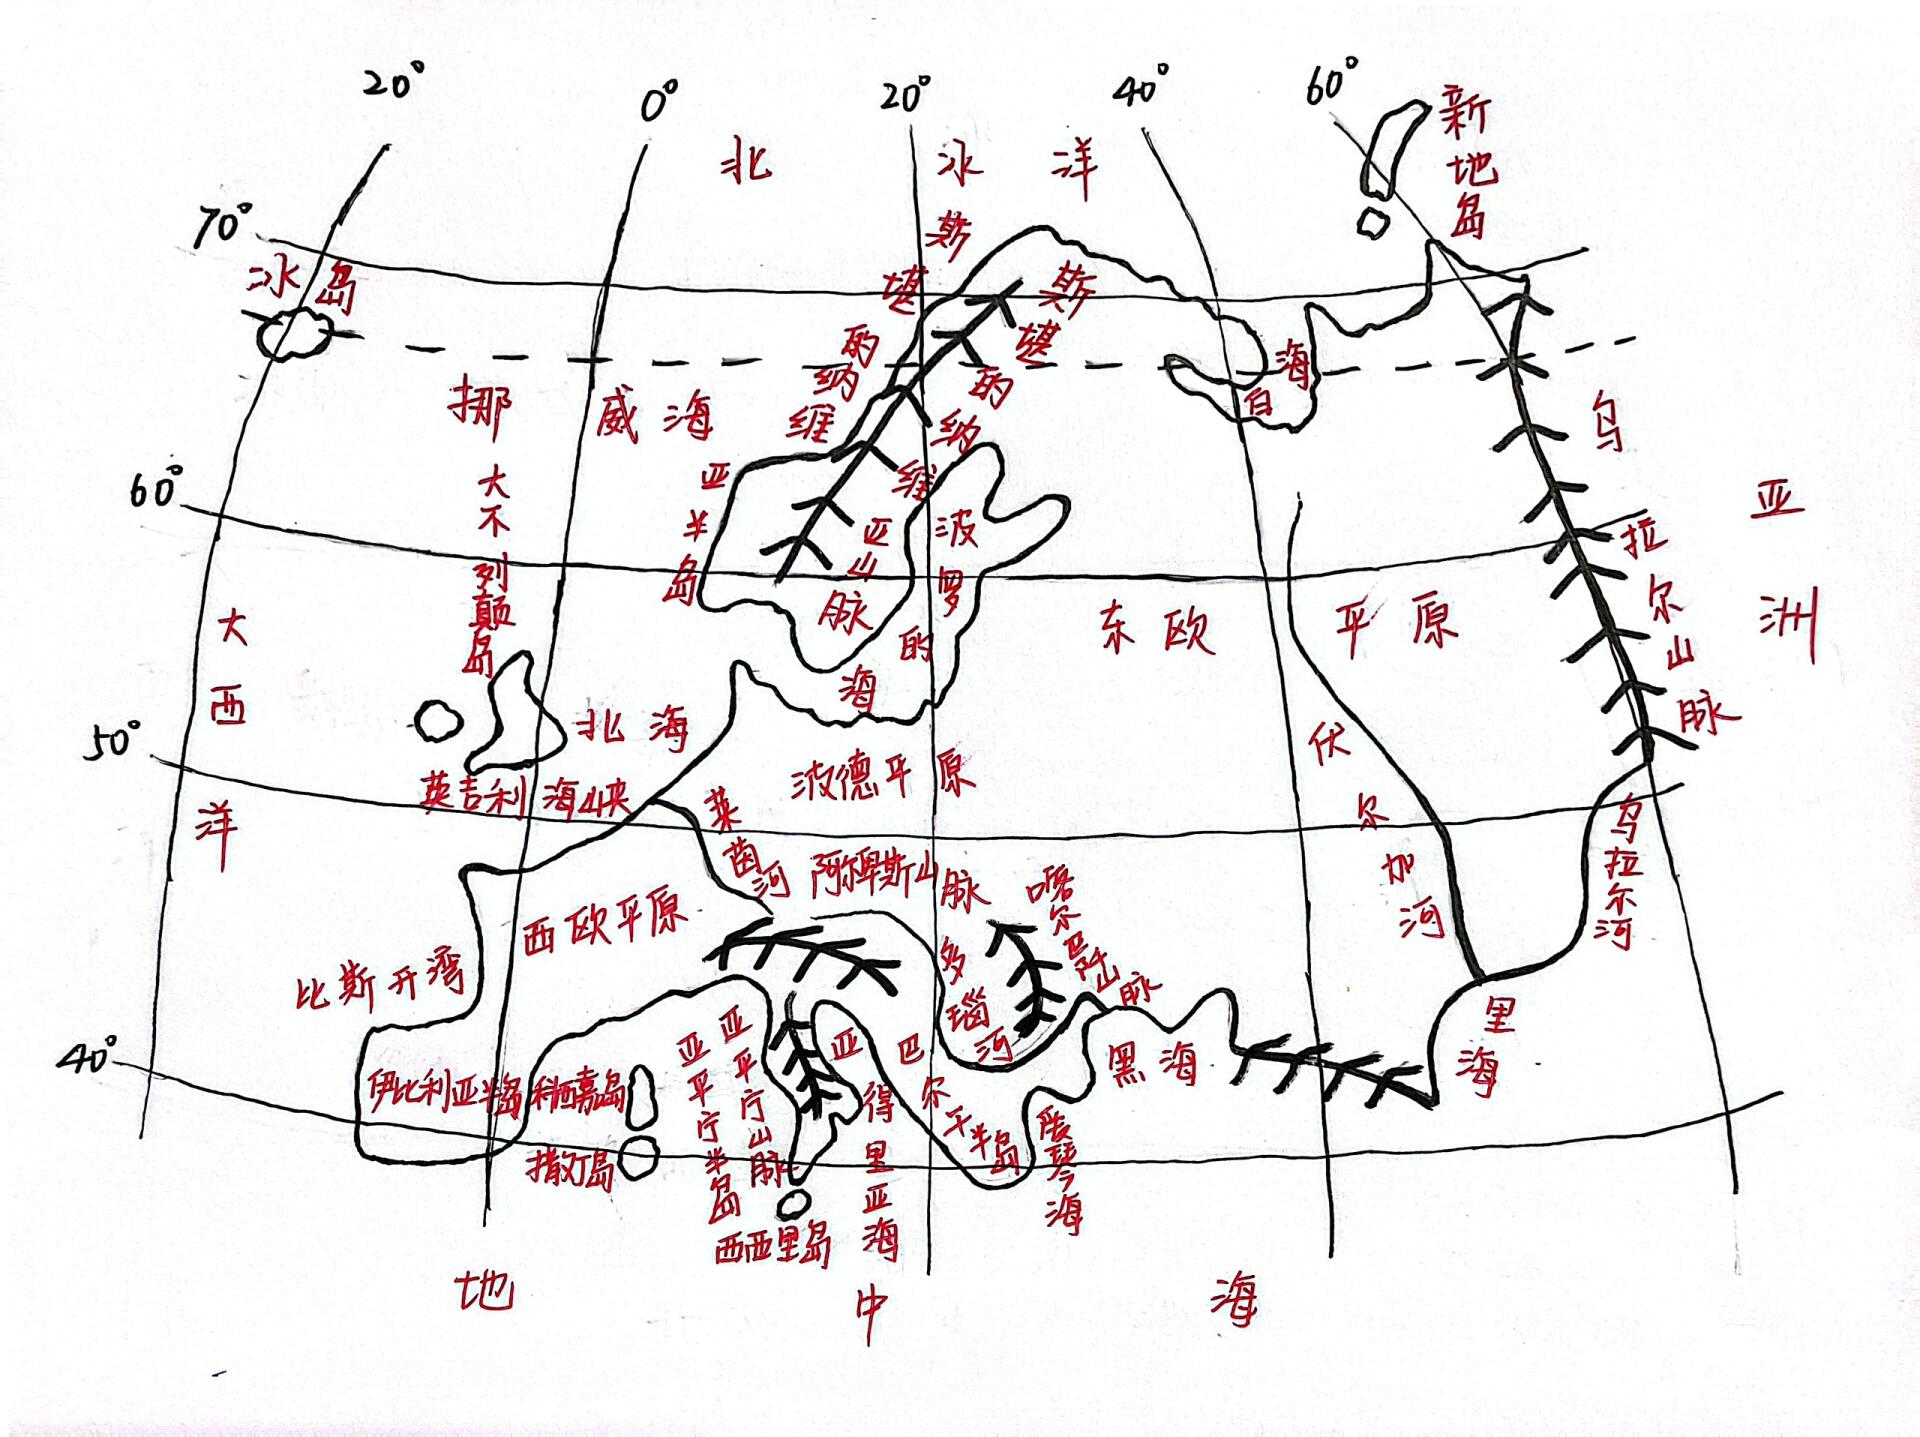 20°
0°
20°
40°
60°
新地岛
北冰洋
70°
冰岛
斯堪的纳维亚半岛
斯堪的纳维亚山脉
白海
挪威海
乌拉尔山脉
亚洲
60°
大不列颠岛
波罗的海
东欧平原
大西洋
50°
北海
英吉利海峡
波德平原
莱茵河
伏尔加河
乌拉尔河
阿尔卑斯山脉
喀尔巴阡山脉
西欧平原
多瑙河
比斯开湾
40°
伊比利亚半岛
科西嘉岛
撒丁岛
亚平宁半岛
亚平宁山脉
西西里岛
亚得里亚海
巴尔干半岛
爱琴海
黑海
里海
地中海